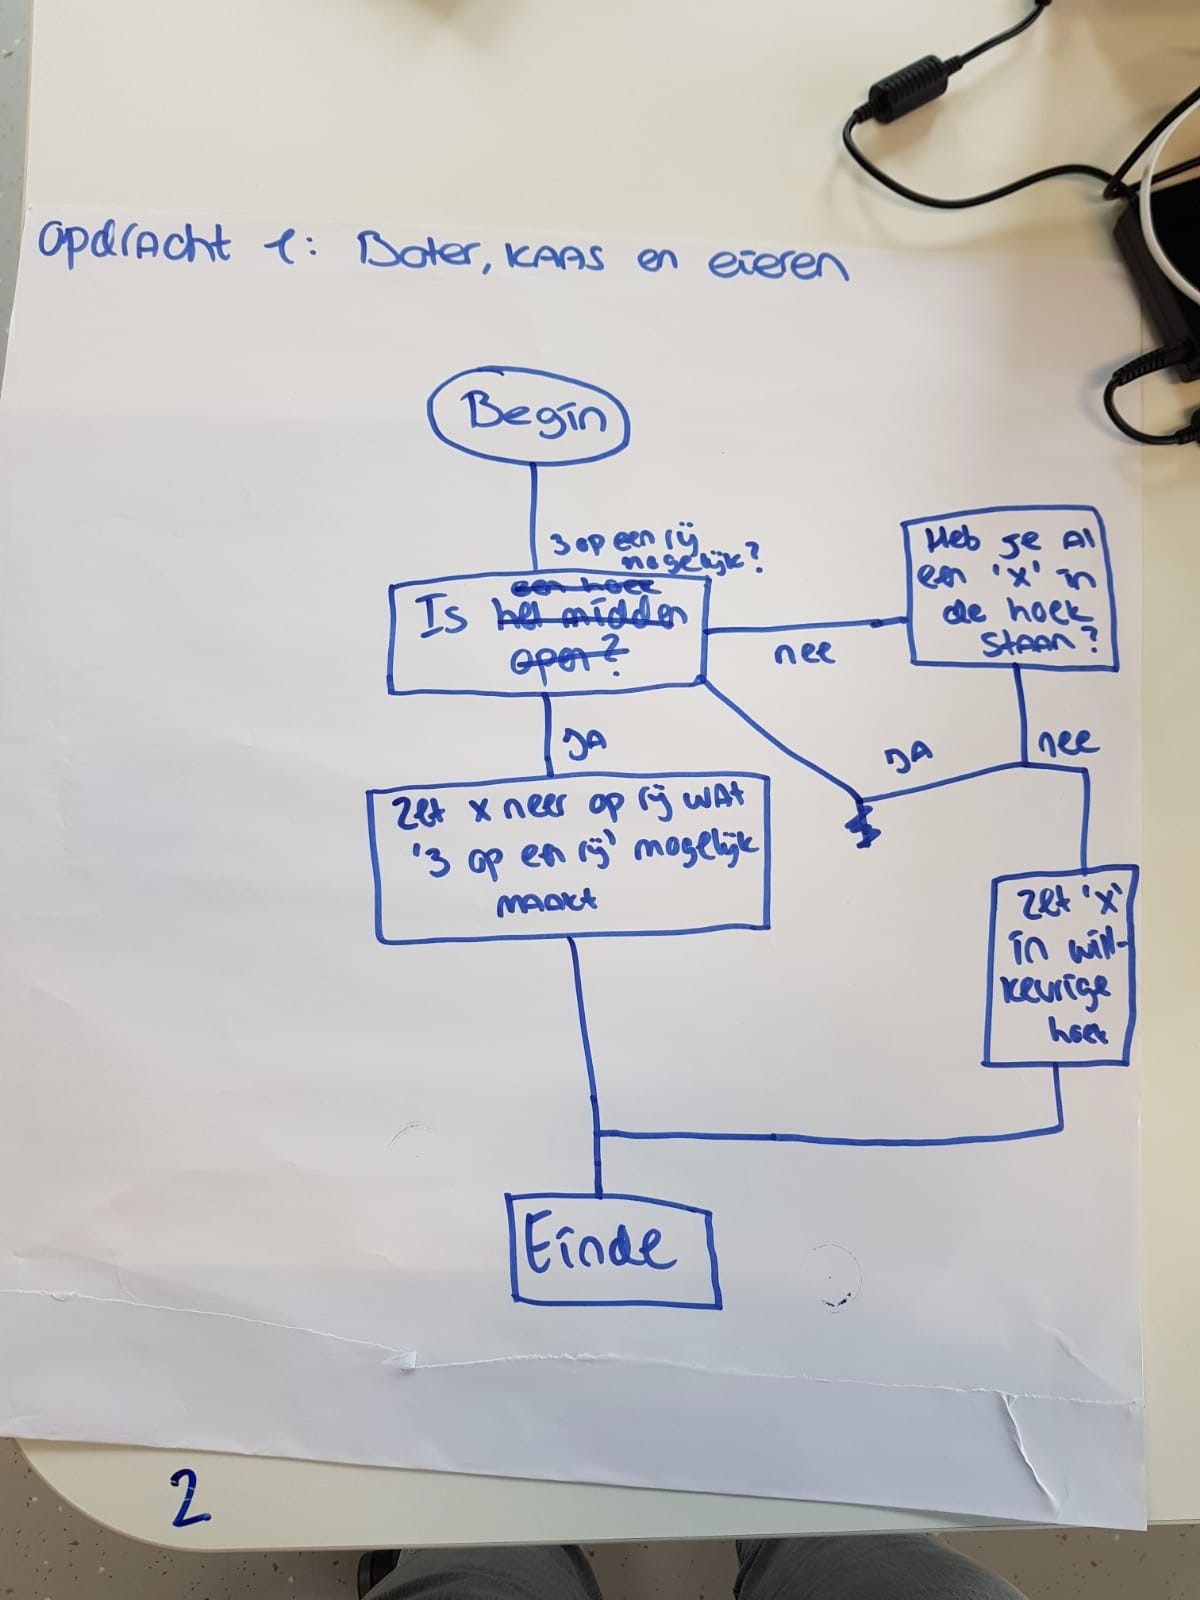 OpdrAcht 1: Boter, KAAS en eieren
Begin
3 op een rij
mogelijk?
een hoek
Is het midden
open?
nee
Heb je Al
een 'x' in
de hoek
STAAN?
JA
JA
nee
Zet x neer op rij wAt
'3 op en rij' mogelijk
MAAKt
Zet 'x'
in will-
keurige
hoek
Einde
2